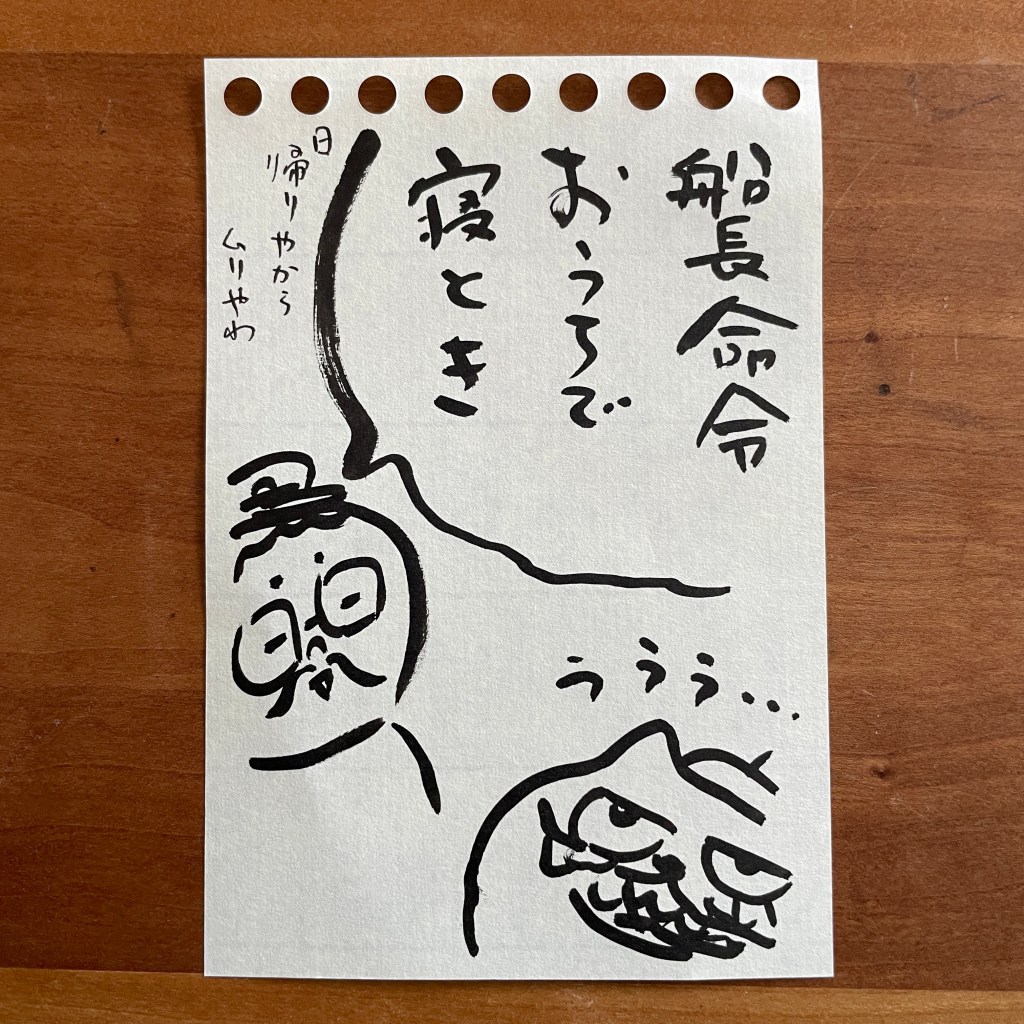 船長命令
おうちで
寝とき
日帰りやから
ムリやわ
ううう…